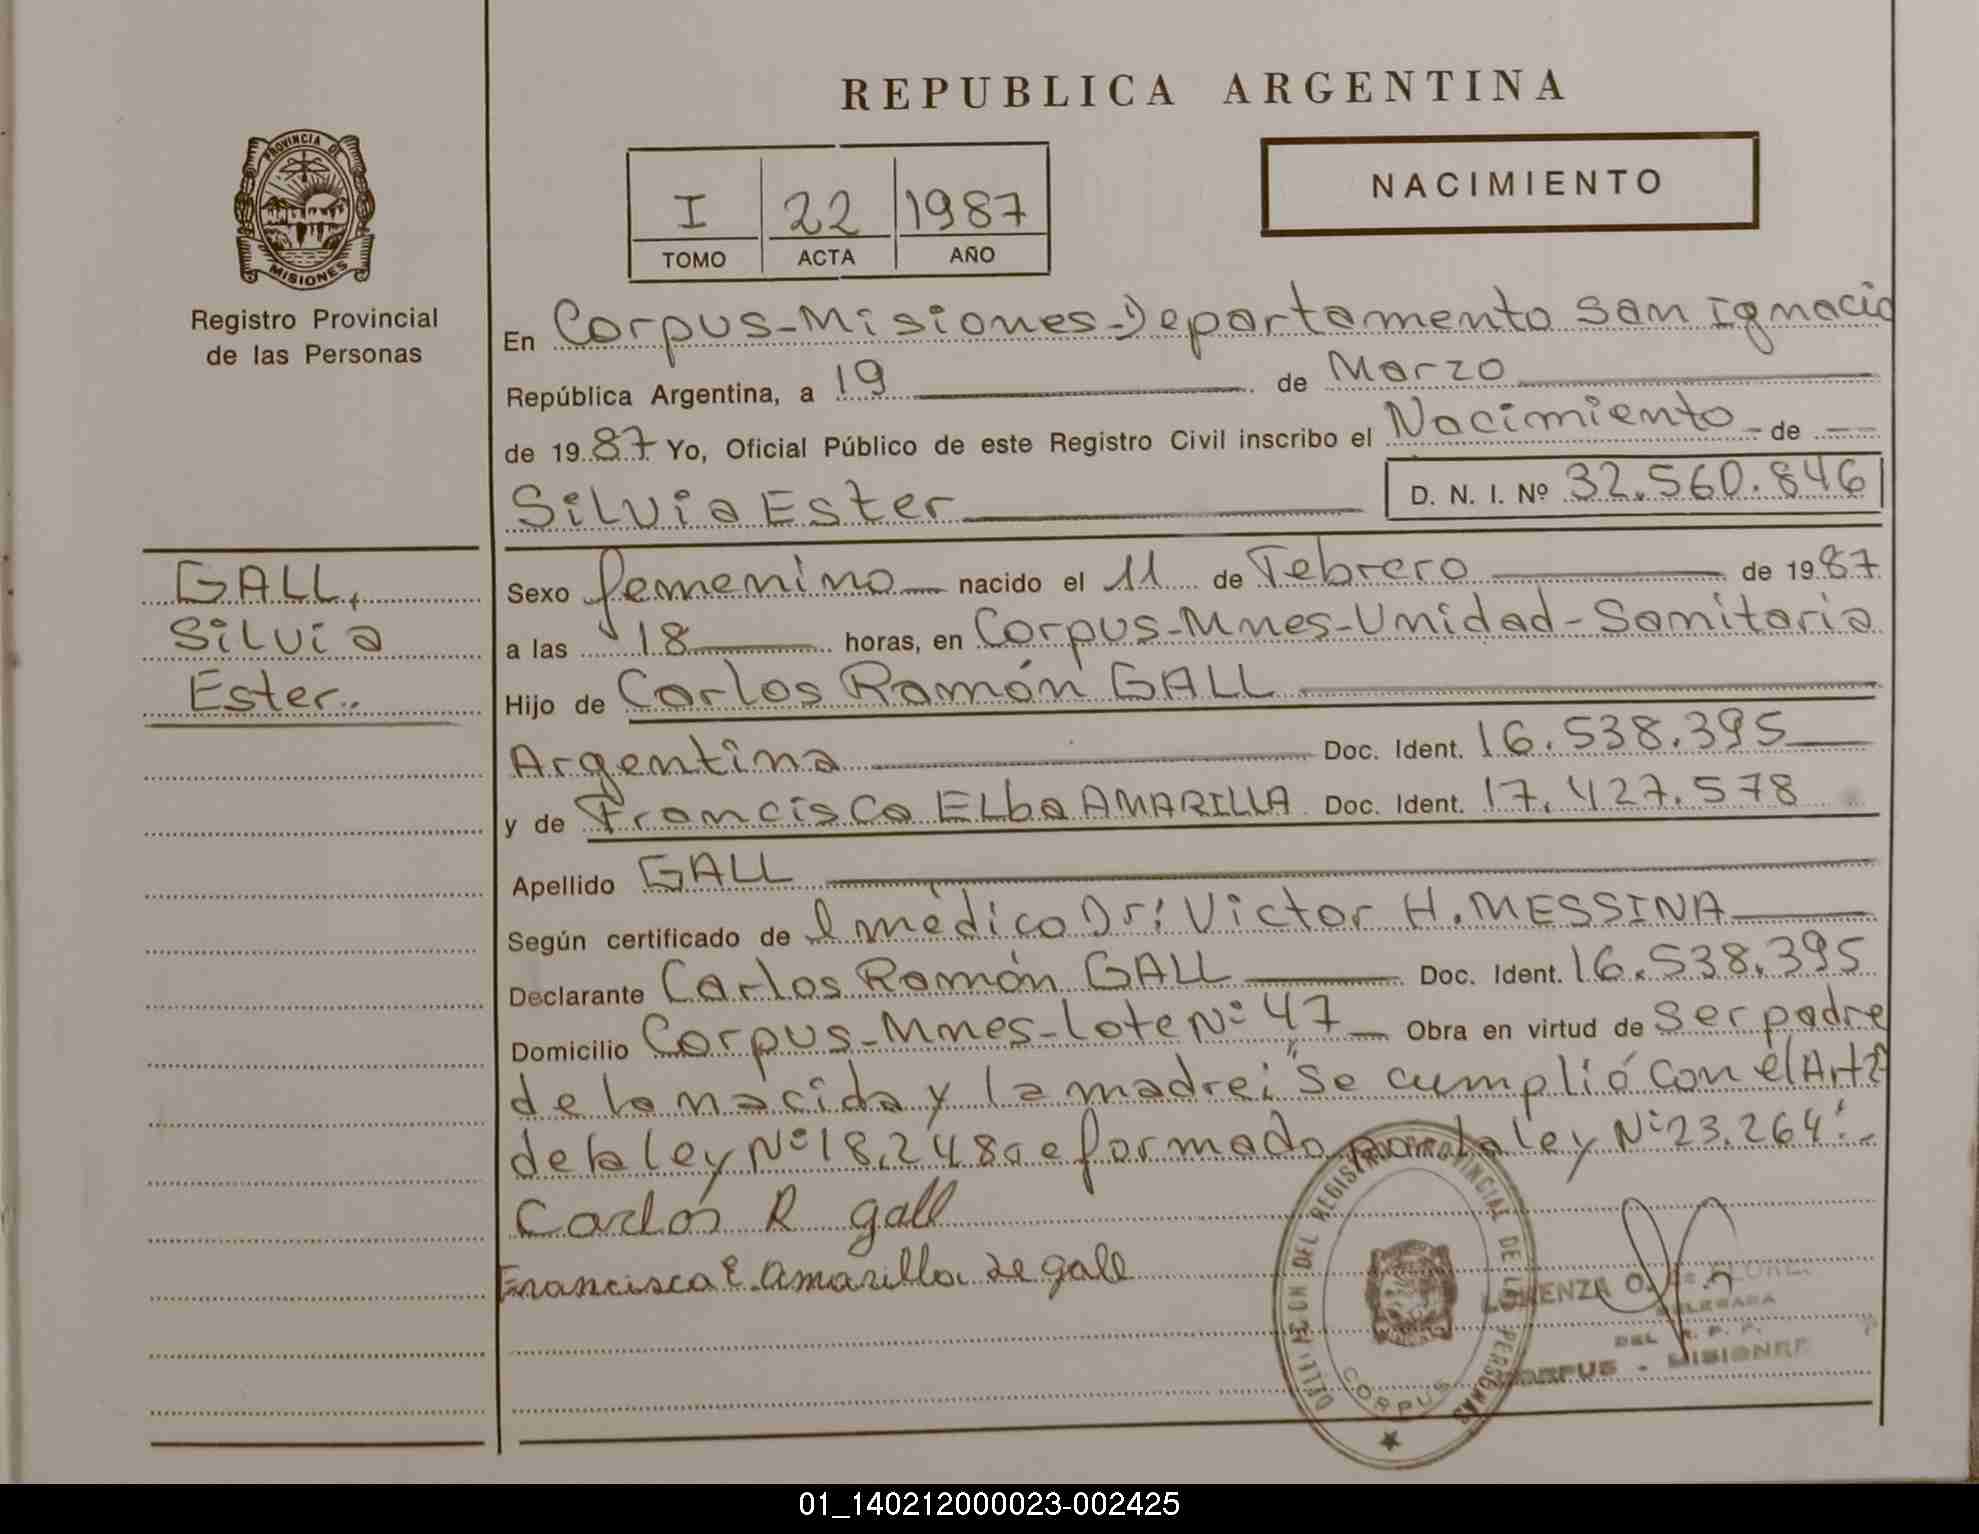 REPUBLICA ARGENTINA
PROVINCIA DE
MISIONES
Registro Provincial
de las Personas
I 22 1987
TOMO ACTA AÑO
NACIMIENTO
En Corpus-Misiones-Departamento San Ignacio
República Argentina, a 19 de Marzo
de 1987 Yo, Oficial Público de este Registro Civil inscribo el Nacimiento - de --
Silvia Ester D. N. I. Nº 32.560.846
GALL,
Silvia
Ester.
Sexo femenino nacido el 11 de Febrero de 1987
a las 18 horas, en Corpus-Mnes-Unidad-Sanitaria
Hijo de Carlos Ramón GALL
Argentina Doc. Ident. 16.538.395
y de Francisca ELba AMARILLA Doc. Ident. 17.427.578
Apellido GALL
Según certificado de l médico Dr: Victor H. MESSINA
Declarante Carlos Ramón GALL Doc. Ident. 16.538.395
Domicilio Corpus-Mnes-Lote Nº 47 Obra en virtud de ser padre
de la nacida y la madre; "Se cumplió con el Art
de la ley Nº 18.248 reformado por la ley Nº 23.264".-
Carlos R gall
Francisca E. Amarilla de gall
DELEGACION DEL REGISTRO PROVINCIAL DE LAS PERSONAS
CORPUS
LORENZA O.
DELEGADA
DEL R. P. P.
CORPUS - MISIONES
01_140212000023-002425